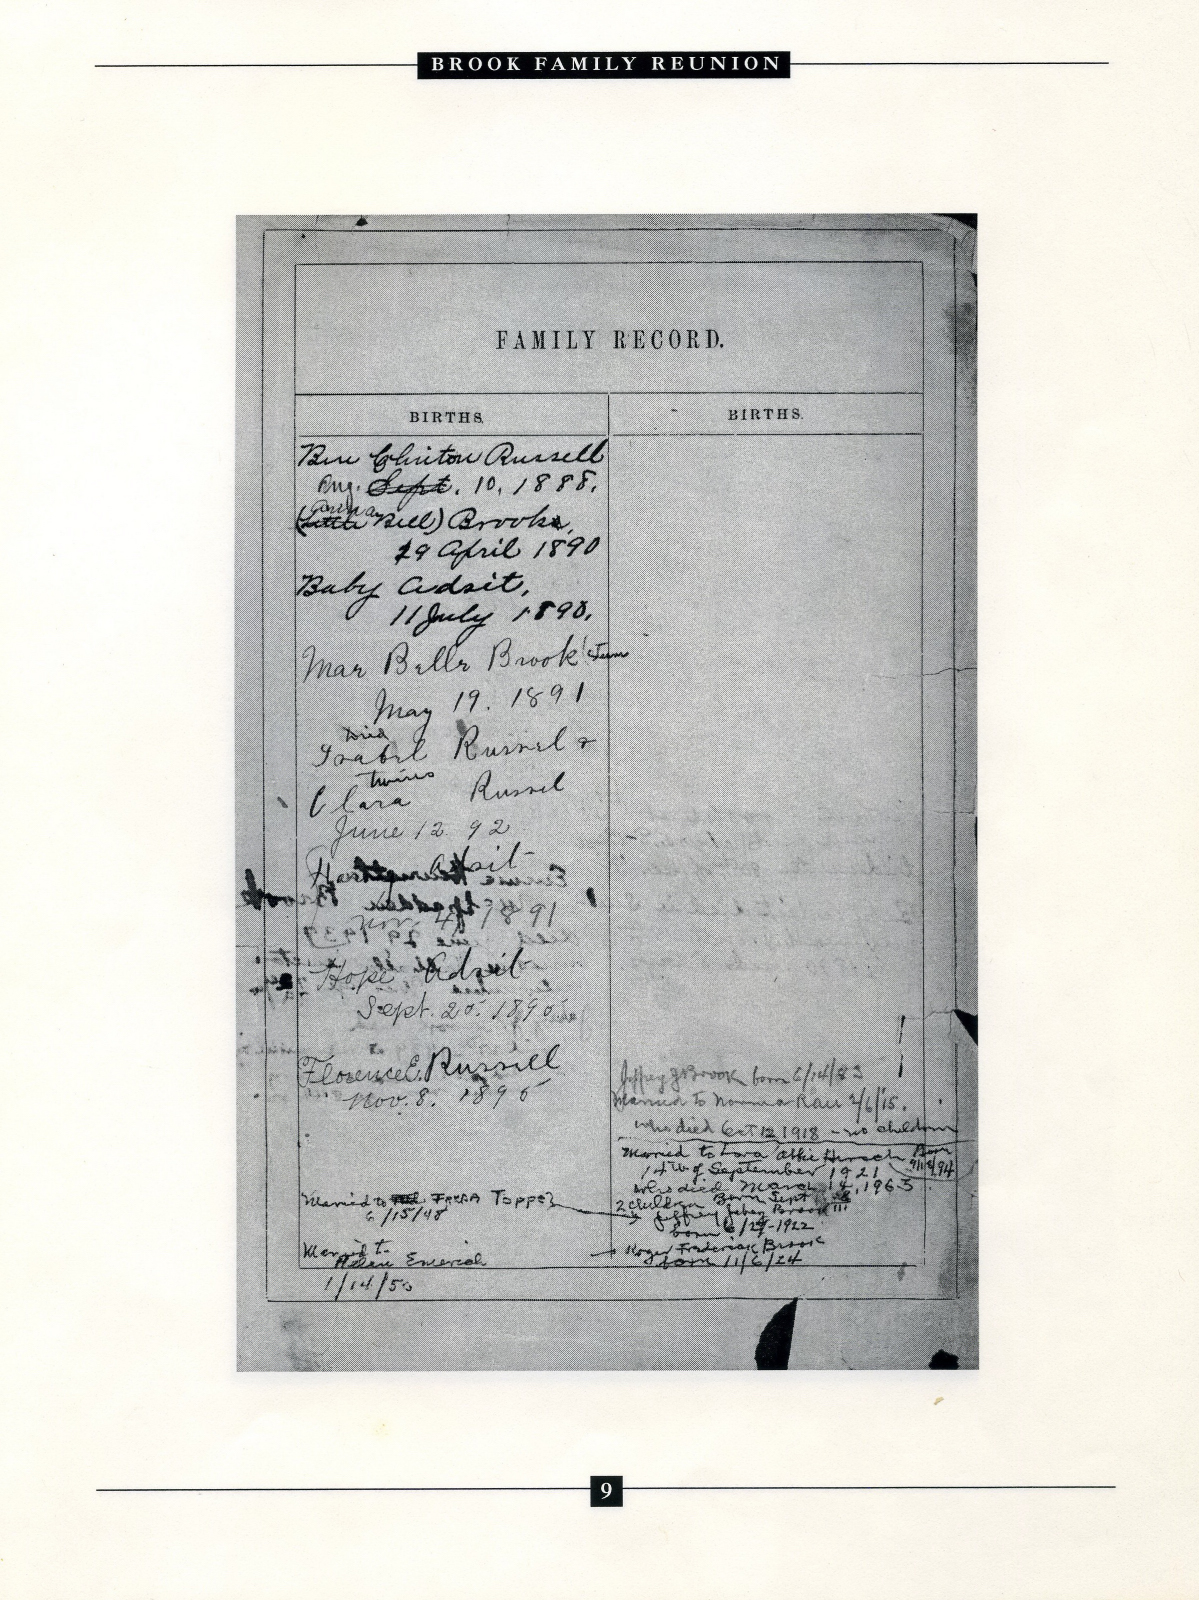 BROOK FAMILY REUNION
FAMILY RECORD.
BIRTHS.
Ben Clinton Russell
Aug. Sept. 10, 1888.
(Little Bill) Brooks,
29 April 1890
Baby Adsit,
11 July 1890.
Mae Belle Brook
May 19. 1891
Isabel Russel &
twins
Clara Russel
June 12 92
Adsit
Nov. 4 1891
Hope Adsit
Sept. 20. 1895
Florence E. Russell
Nov. 8. 1895
Married to Freda Topper
6/15/48
Married to
Helen Emerich
1/14/50
BIRTHS.
Jeffrey J Brook born 6/14/83
Married to Norma Rau 2/6/15.
who died Oct 12 1918 - no children
Married to Lora Abbie Hirsch Born
14th of September 1921
who died March 14, 1963
2 children Born Sept
Jeffrey Brook III
born 6/29-1922
Roger Frederick Brook
born 11/6/24
9